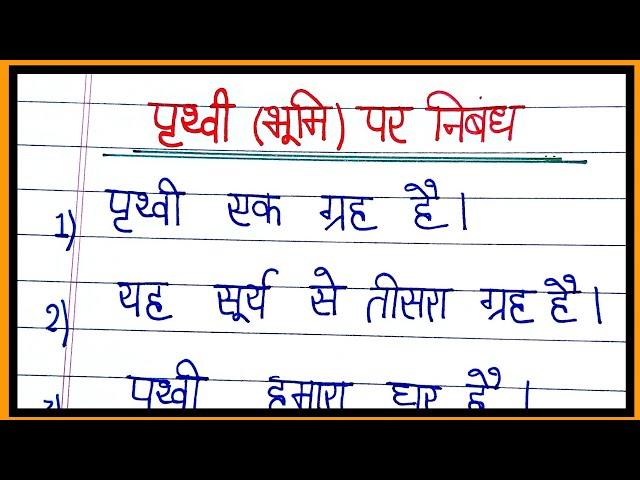 पृथ्वी (भूमि) पर निबंध
1) पृथ्वी एक ग्रह है।
2) यह सूर्य से तीसरा ग्रह है।
3) पृथ्वी हमारा घर है।